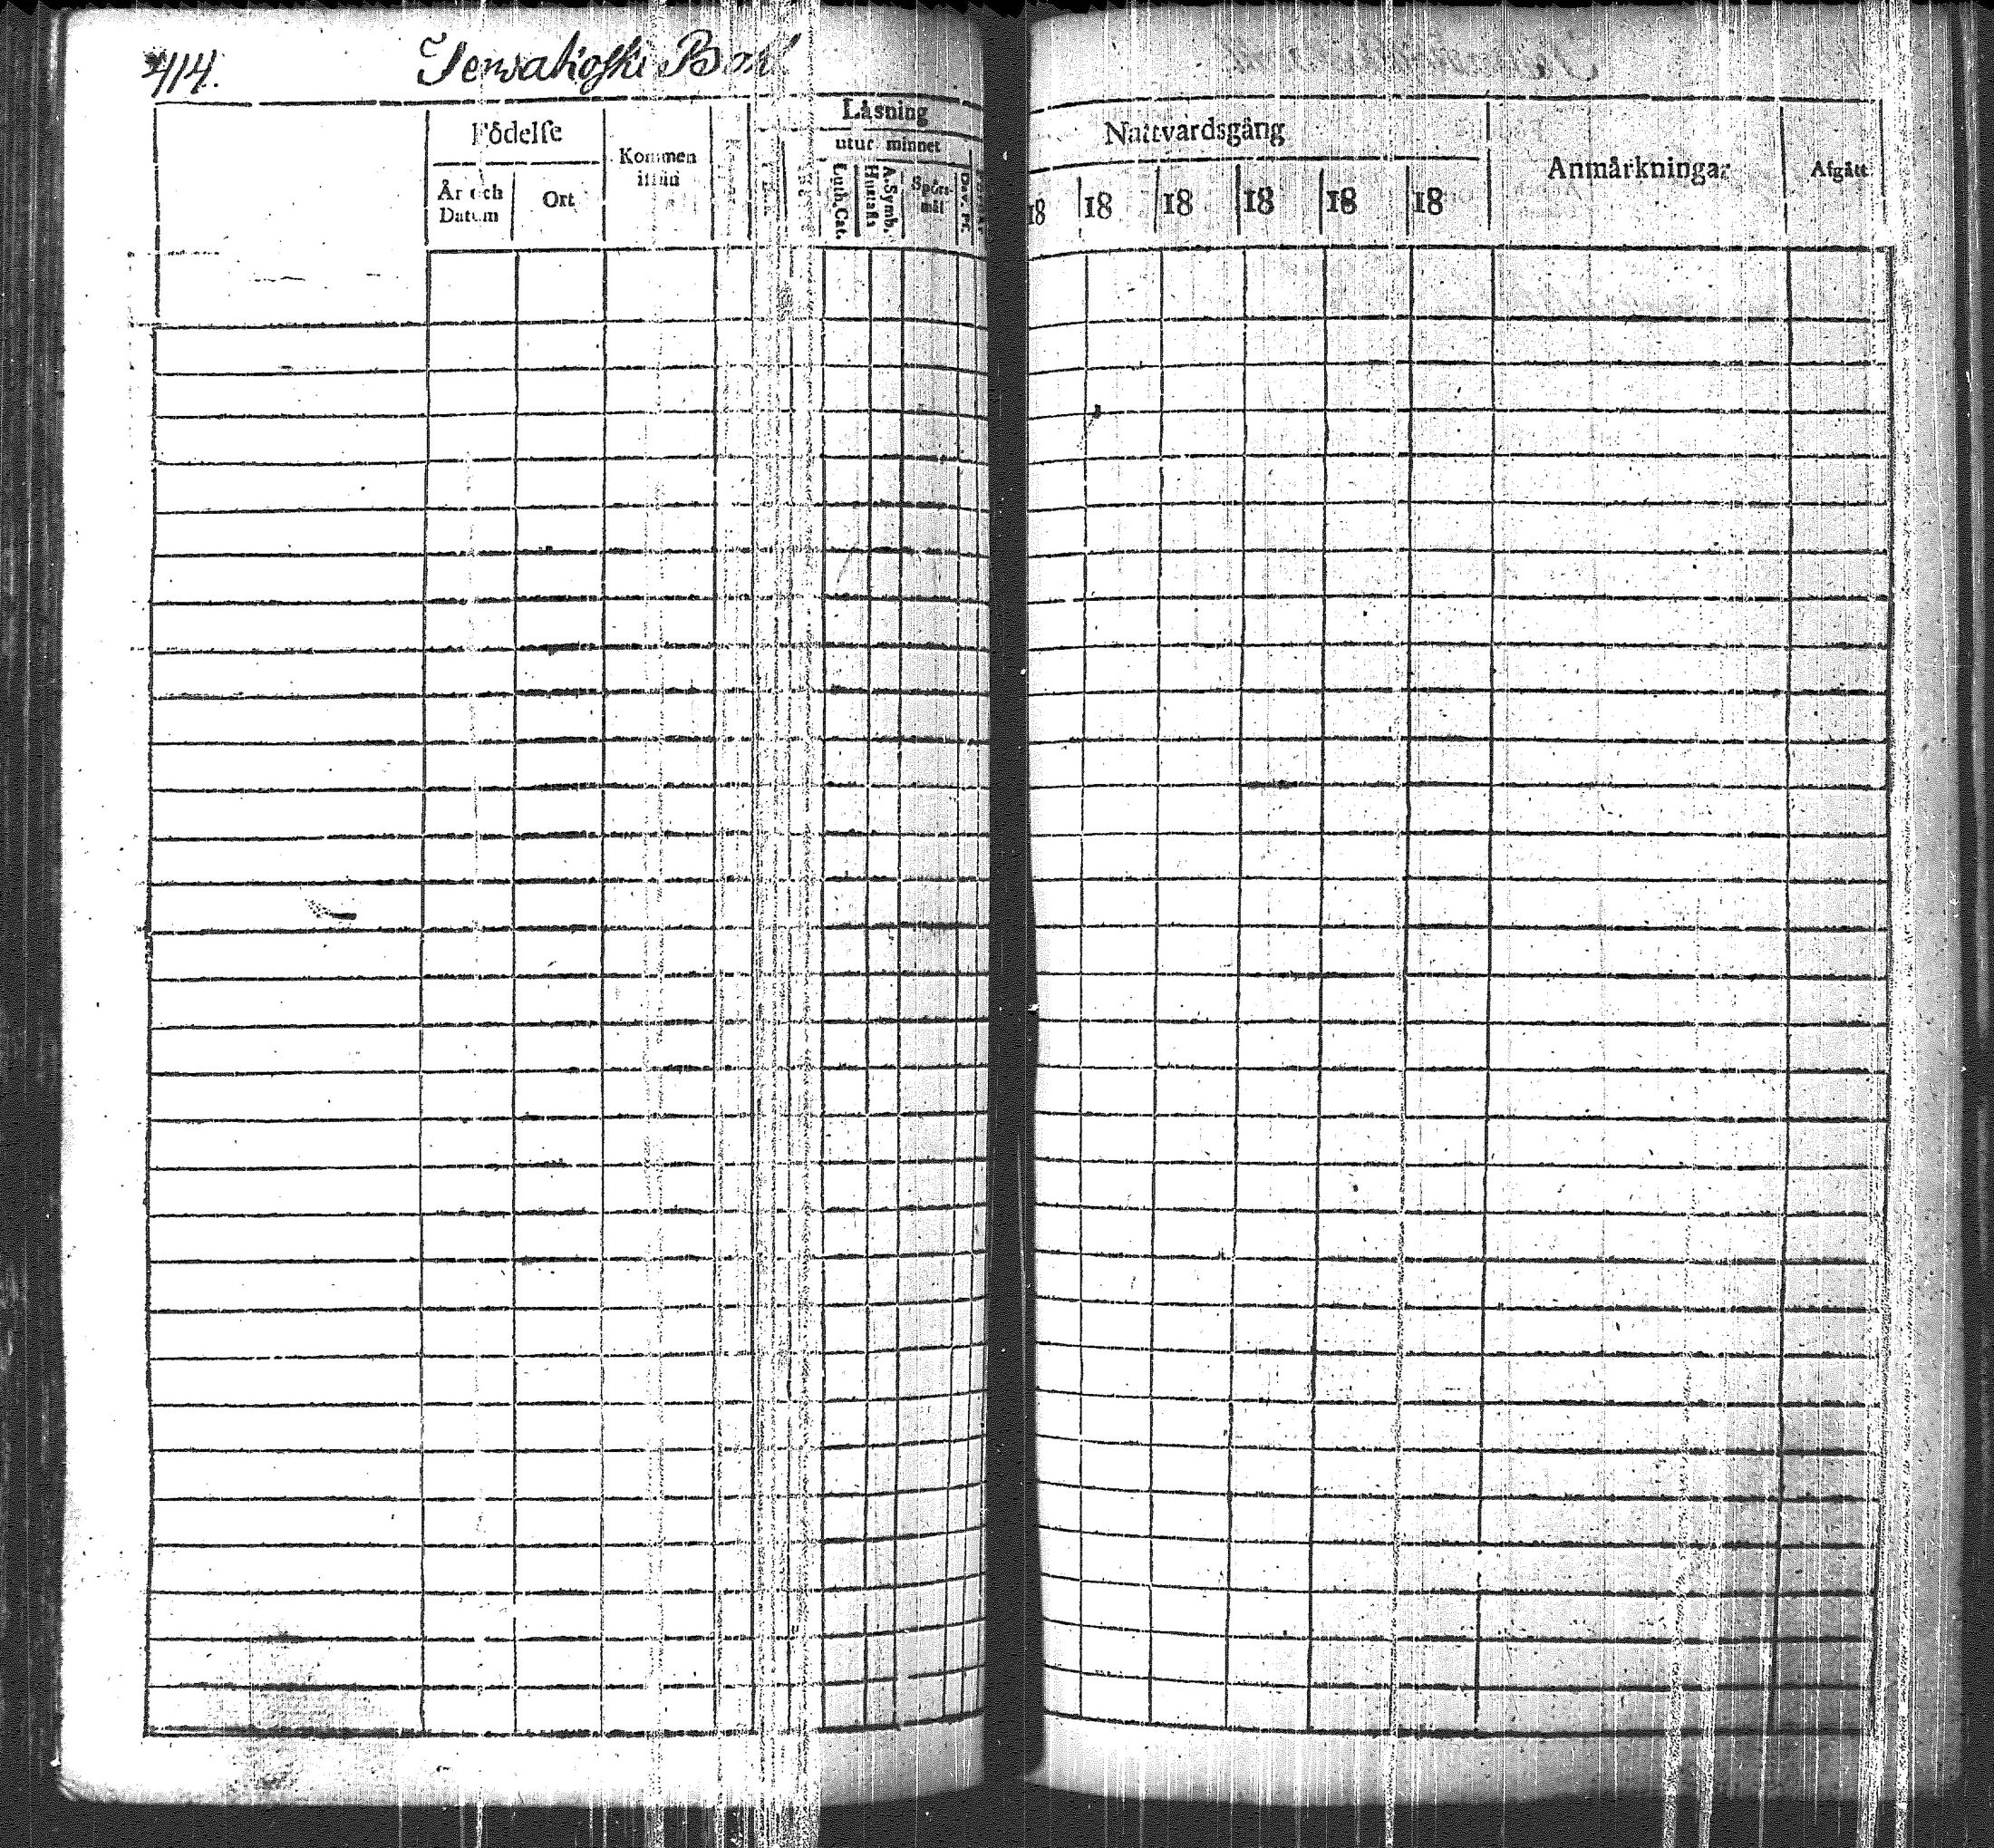 414.
Låsning
Födelse
Kommen
ifrån
utur minnet
År och
Datum
Ort
Luth. Cat.
Hustafla
A. Symb.
Spörs-
mål
Dav. Ps.
Nattvardsgång
Anmärkningar
Afgått
18 18 18 18 18 18